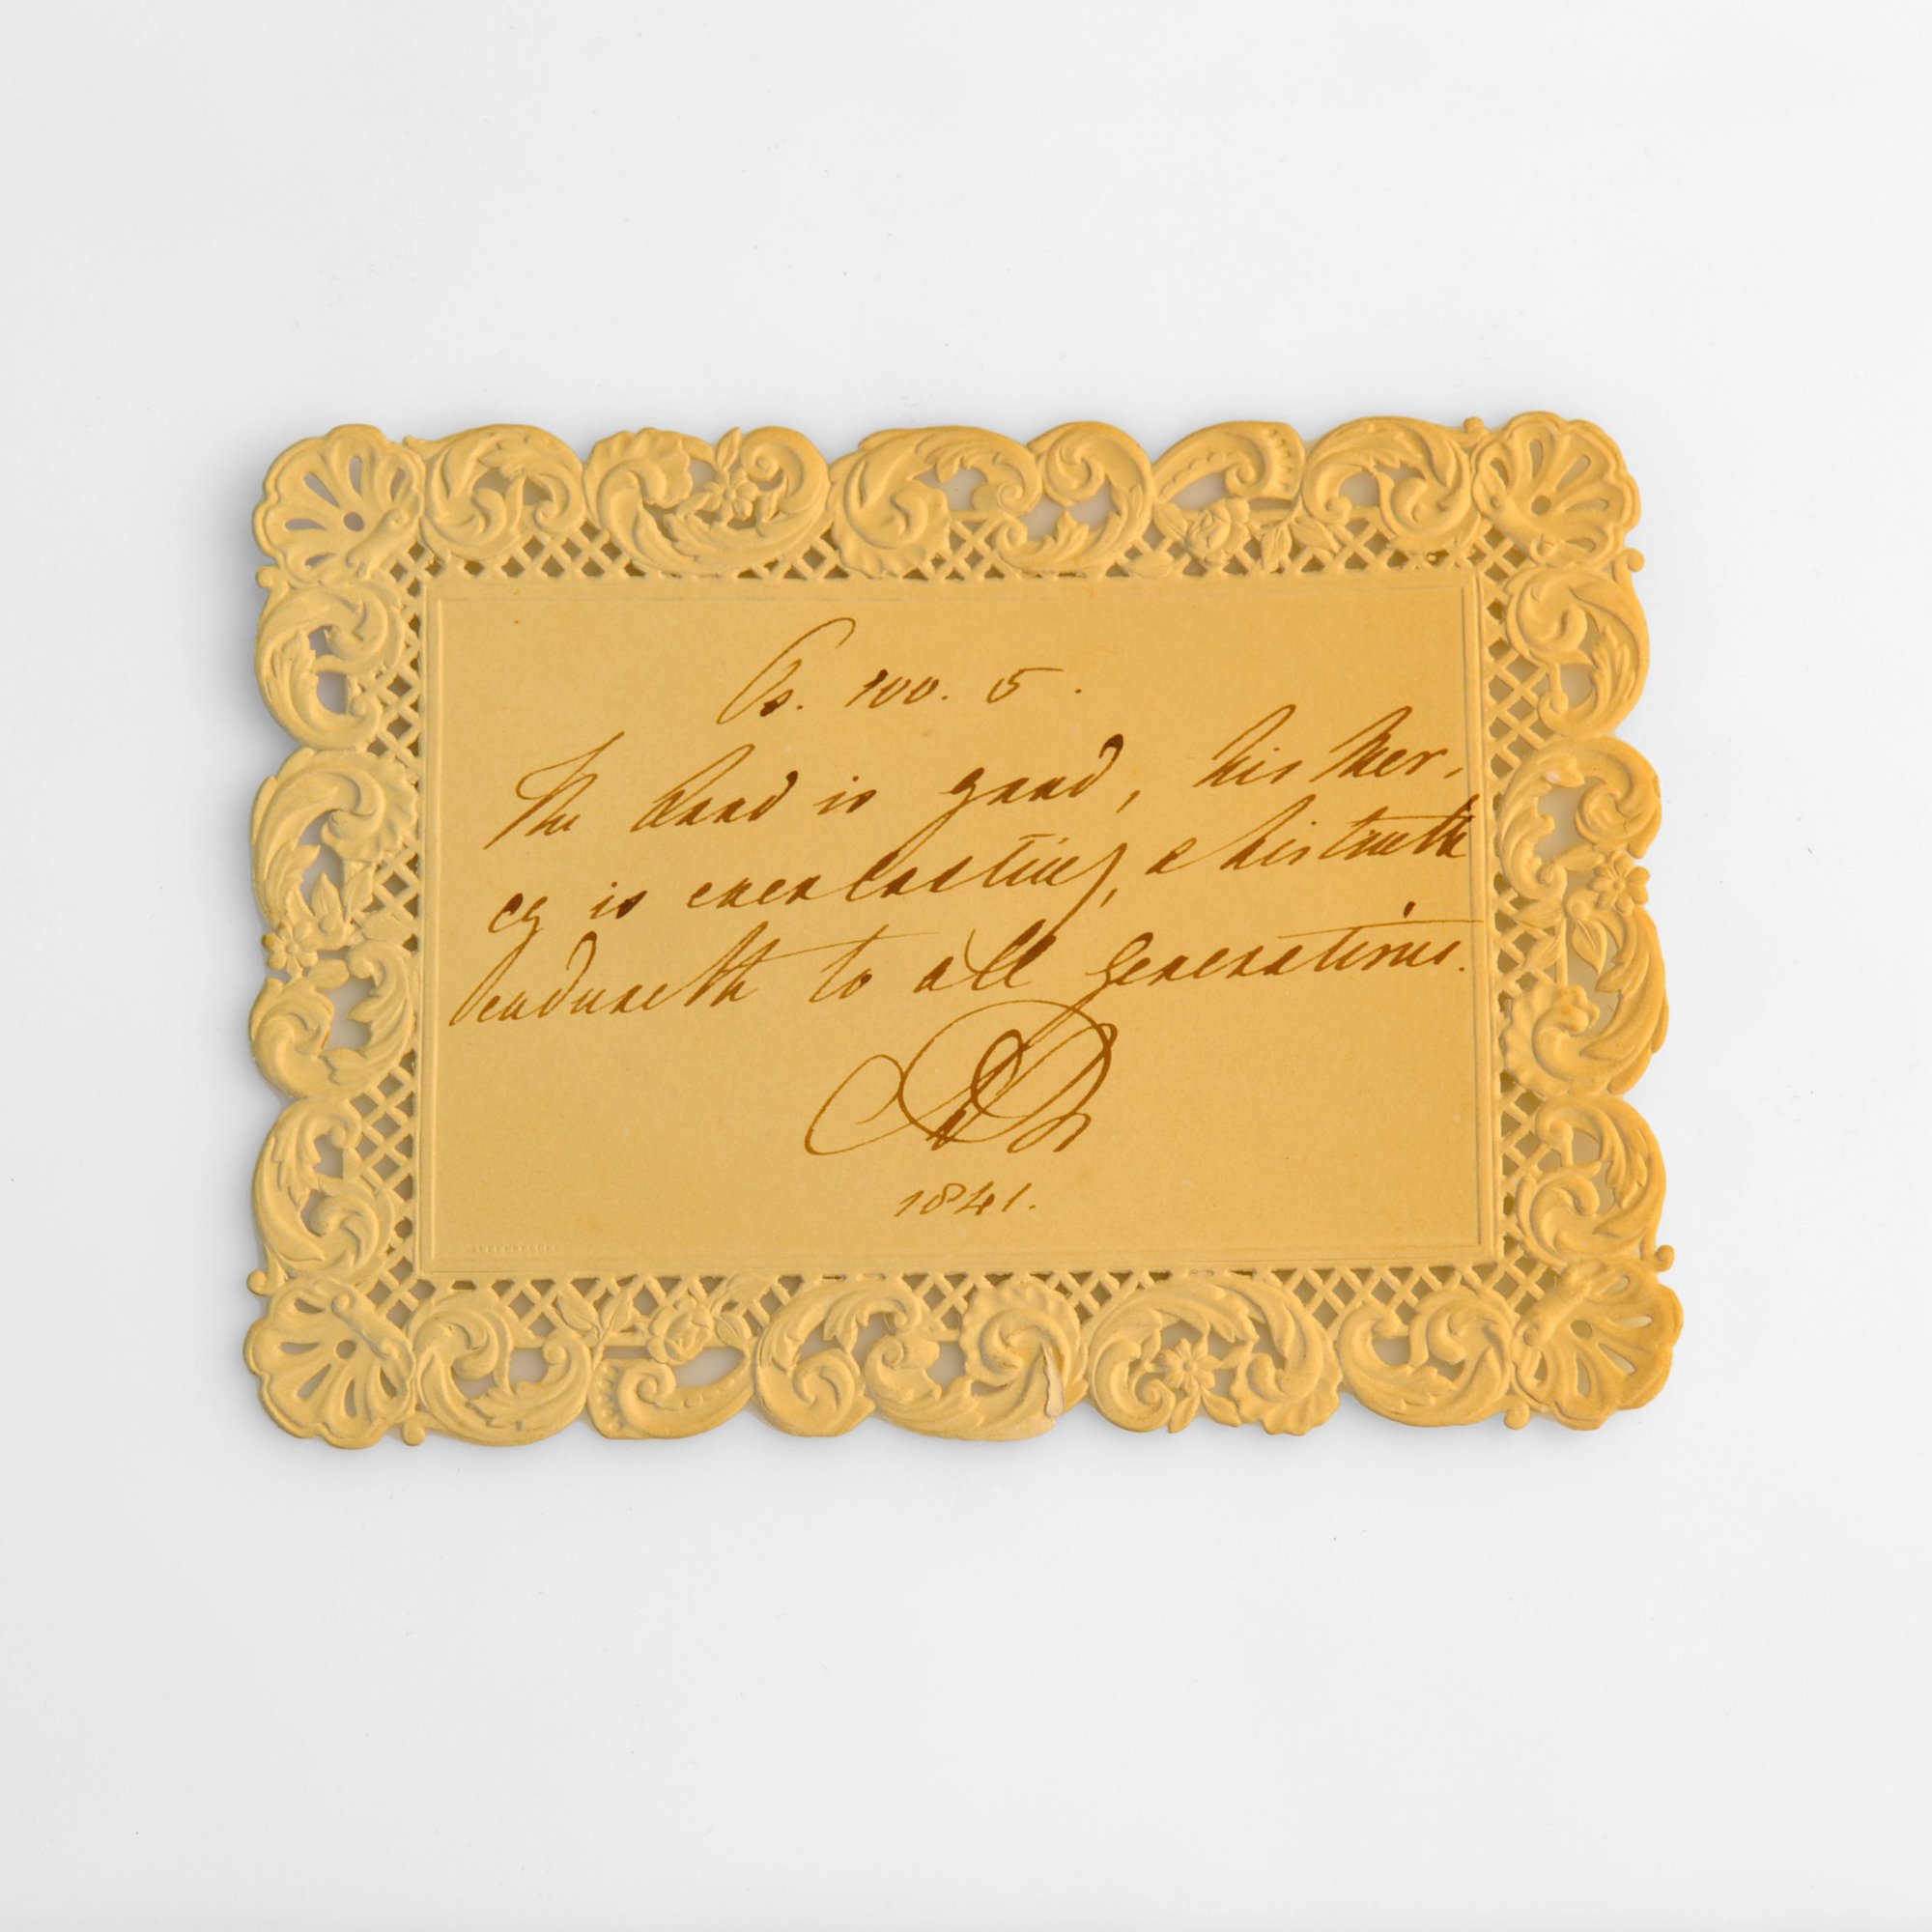 Ps. 100. 5.
The Lord is good, his Mer-
cy is everlasting, & his truth
endureth to all generations.
1841.